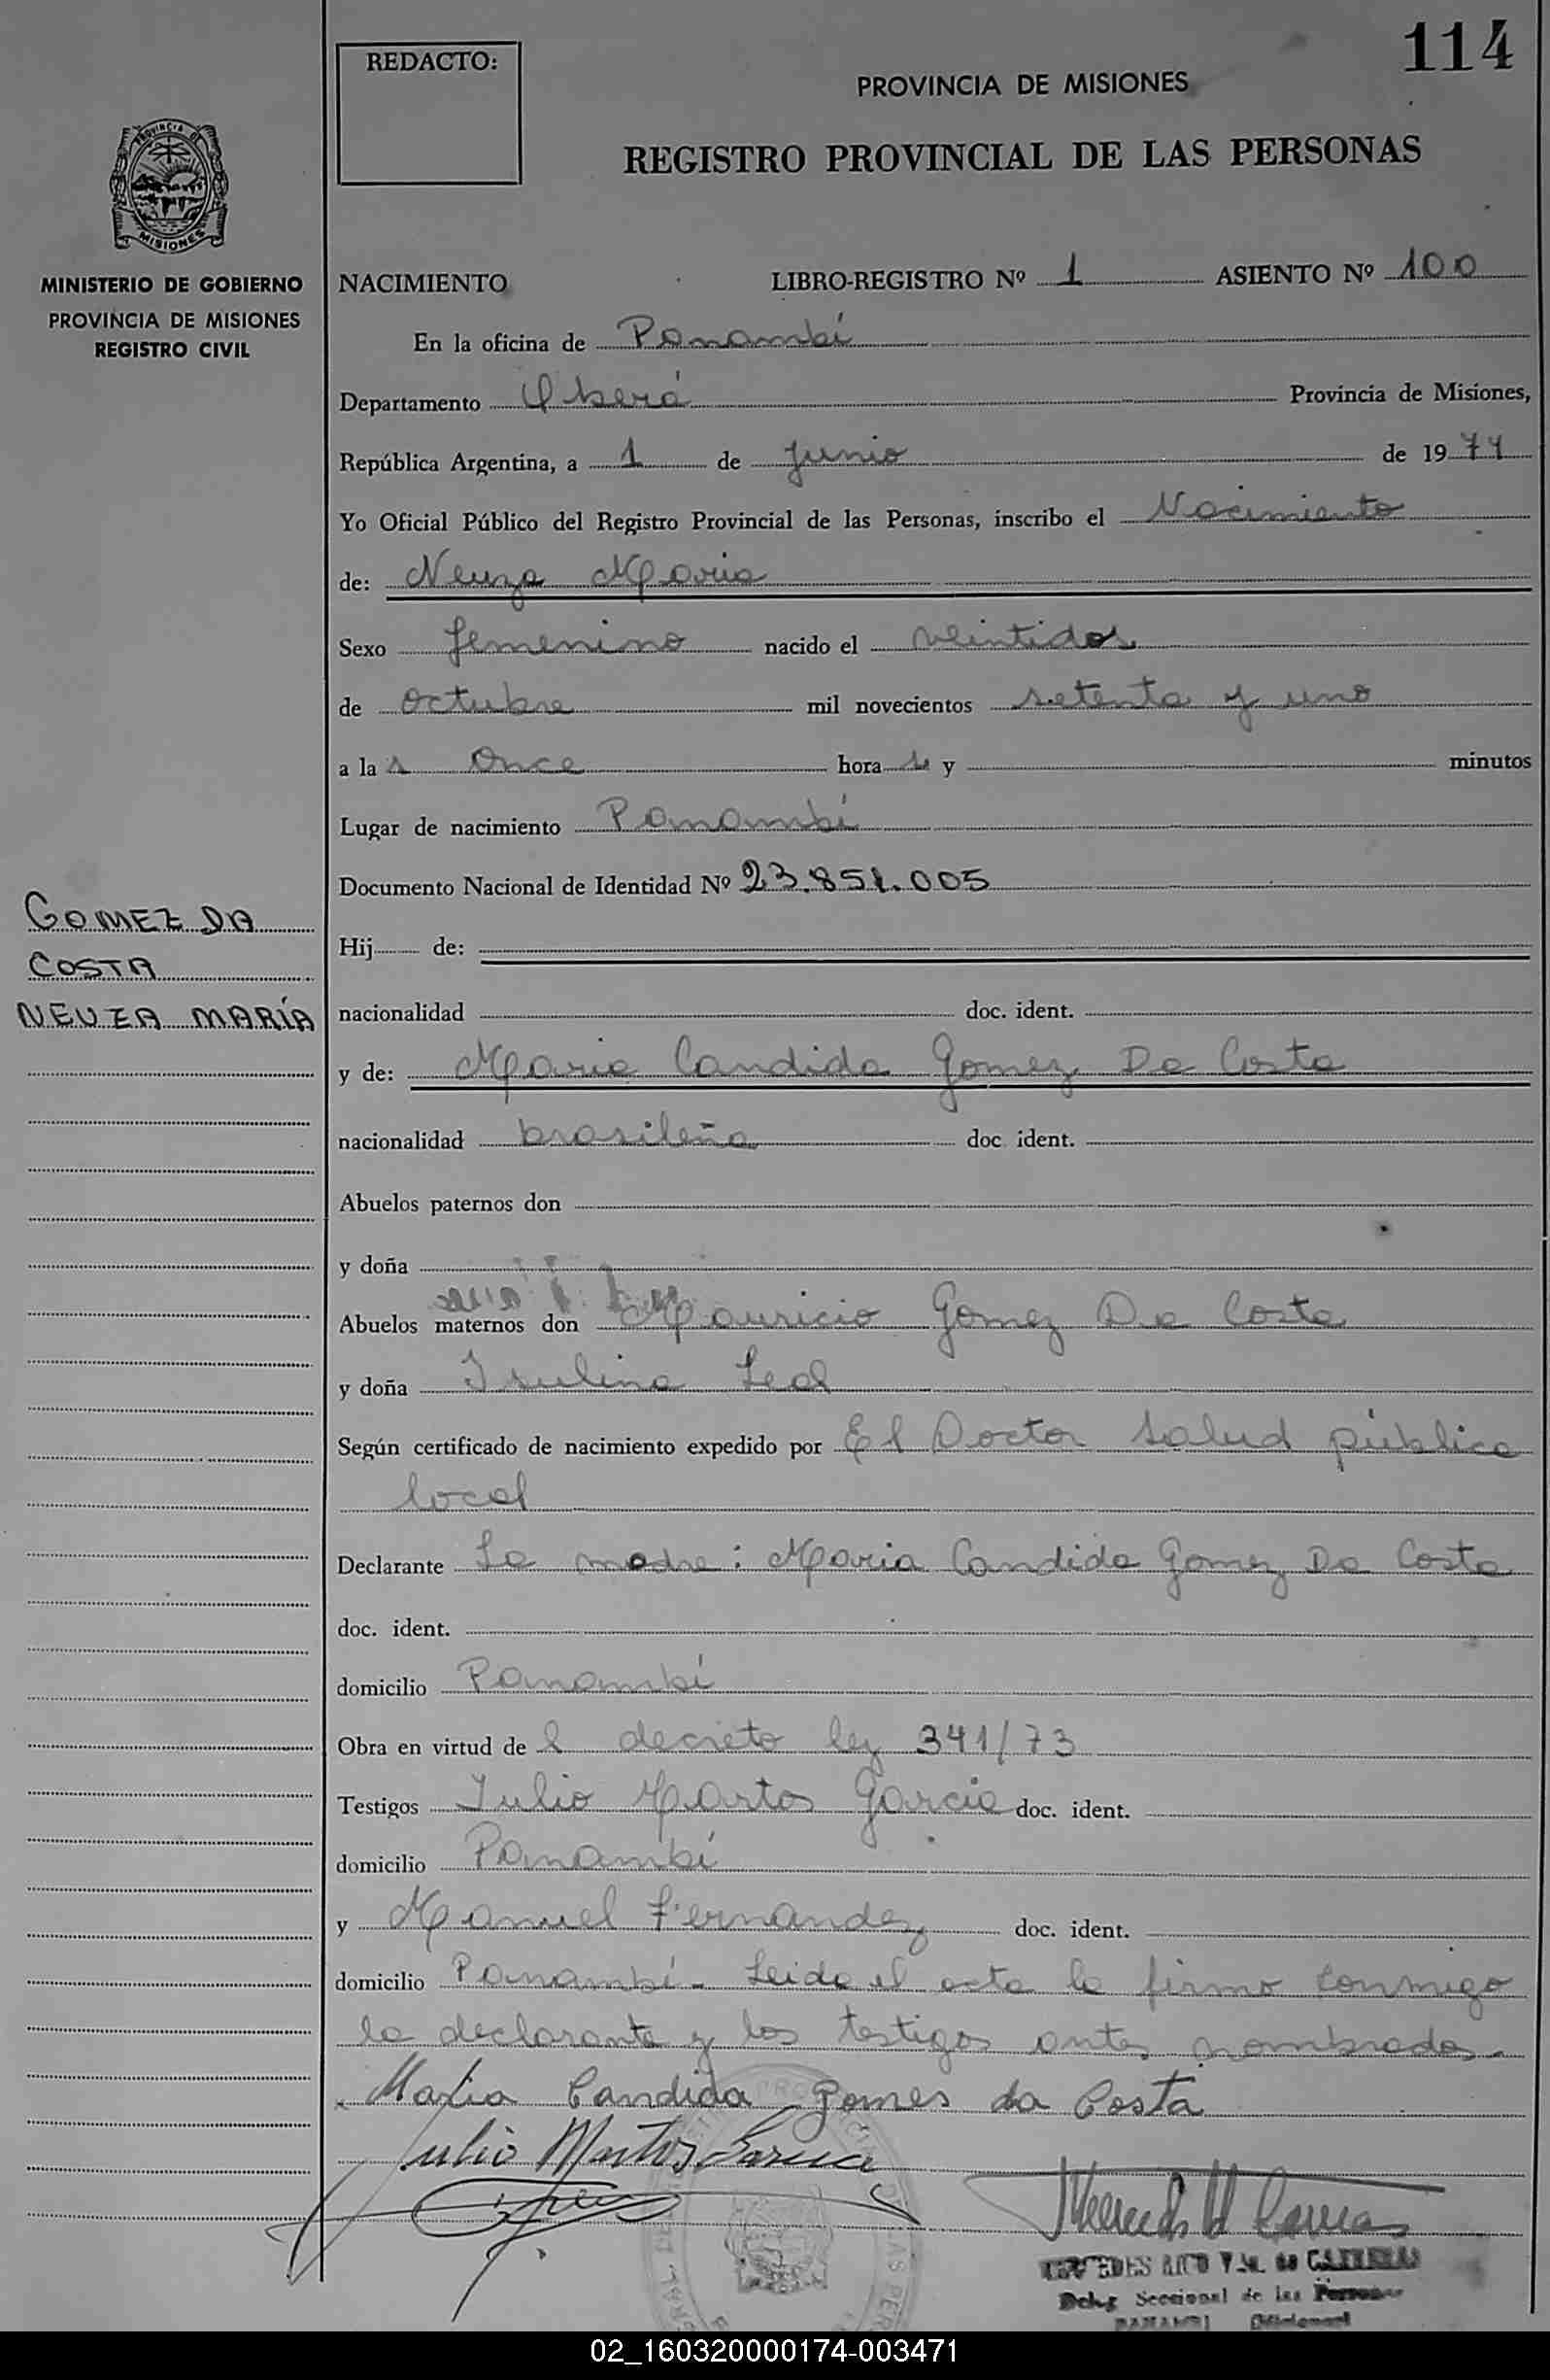 114
REDACTO:
PROVINCIA DE MISIONES
REGISTRO PROVINCIAL DE LAS PERSONAS
PROVINCIA DE
MISIONES
MINISTERIO DE GOBIERNO
PROVINCIA DE MISIONES
REGISTRO CIVIL
NACIMIENTO LIBRO-REGISTRO Nº 1 ASIENTO Nº 100
En la oficina de Panambí
Departamento Oberá Provincia de Misiones,
República Argentina, a 1 de junio de 1974
Yo Oficial Público del Registro Provincial de las Personas, inscribo el Nacimiento
de: Neuza Maria
Sexo femenino nacido el veintidos
de octubre mil novecientos setenta y uno
a las once horas y minutos
Lugar de nacimiento Panambí
Documento Nacional de Identidad Nº 23.851.005
GOMEZ DA
COSTA
NEUZA MARÍA
Hij de:
nacionalidad doc. ident.
y de: Maria Candida Gomez Da Costa
nacionalidad brasileña doc. ident.
Abuelos paternos don
y doña
Abuelos maternos don Mauricio Gomez Da Costa
y doña Isulina Leal
Según certificado de nacimiento expedido por El Doctor Salud pública
local
Declarante La madre: Maria Candida Gomez Da Costa
doc. ident.
domicilio Panambí
Obra en virtud del decreto ley 341/73
Testigos Julio Martos Garcia doc. ident.
domicilio Panambí
y Manuel Fernandez doc. ident.
domicilio Panambí - Leida el acta la firma conmigo
la declarante y los testigos antes nombrados.
Maria Candida Gomes da Costa
Julio Martos Garcia
MERCEDES RICO V. de CARRERAS
Deleg Seccional de las Personas
PANAMBI (Misiones)
02_160320000174-003471